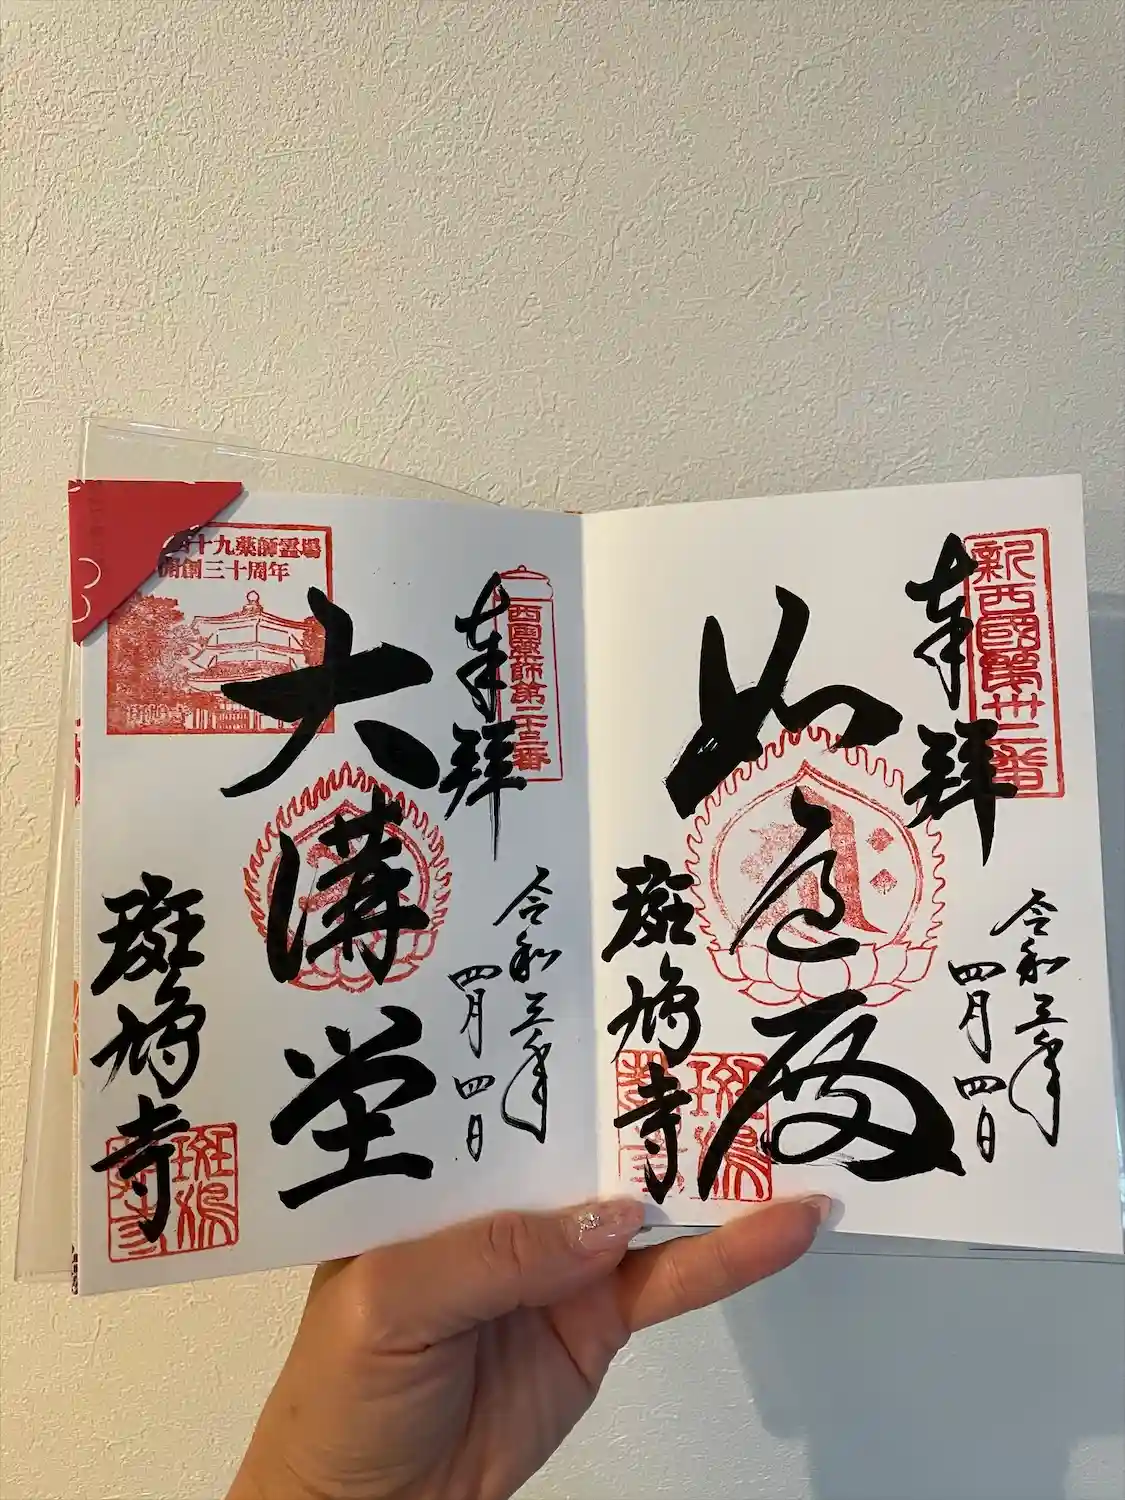 新西國第卅二番
奉拝
令和三年
四月四日
如意殿
斑鳩寺
斑鳩
西國薬師第二十三番
奉拝
令和三年
四月四日
大講堂
四十九薬師霊場
開創三十周年
斑鳩寺
斑鳩